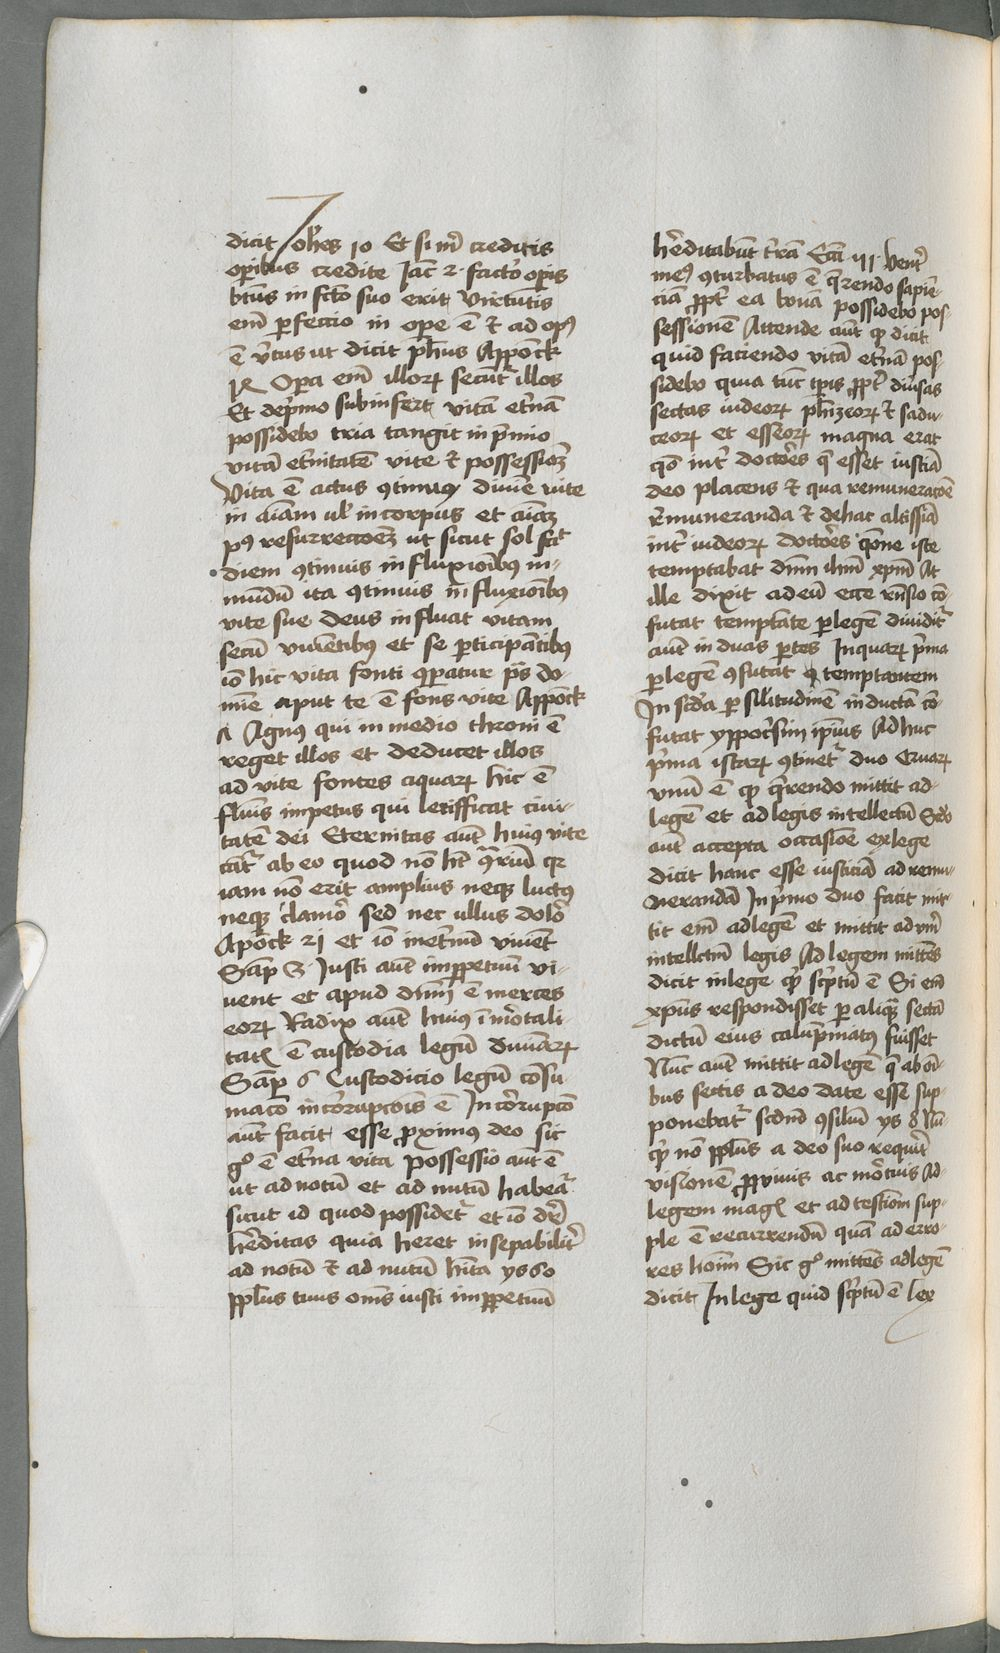 dicit Ioh̄es 10 Et si m̄ creditis
operibus credite Iac̄ 2 · fact̄o opis
btūs in fc̄to suo erit Virtutis
em̄ perfeccio in ope ē ⁊ ad opꝰ
ē v̄tus ut dicit ph̄us Appock
Opa em̄ illoꝝ secūt̄ illos
Et de p̄mo subinfert vitā et̄nā
possidebo tria tangit in p̄mio
vitā et̄nitatē vite ⁊ possessiōꝫ
Vita ē actus ꝯtinuꝰ diuīe vite
in aīam ul̓ in corpus et
pꝰ resurreccōeꝫ ut sicut sol fa᷑t
diem ꝯtinuis influxioībꝰ in-
mūdū ita ꝯtinuis influxioībꝰ
vite sue deus influat vitam
secū viuētibꝰ et se pꝑticipātibꝰ
iō hic vita fonti ꝯparatur p̄s do-
mīe aput te ē fons vite Appock
Agnꝰ qui in medio throni ē
reget illos et deducet illos
ad vite fontes aquaꝝ hic ē
fluūs impetus qui letifficat ciui-
tatē dei Eternitas aūt huiꝰ vite
cāt᷑ ab eo quod nō ht̄ ꝯ̄riū qr
iam nō erit amplius neqꝫ luctꝰ
neqꝫ clamo᷑ sed nec ullus dolo᷑
Apock 21 et iō inet̄nū viuēt
Sap̄ 5 · Iusti aūt imperpetuū vi-
uent et apud dn̄m ē merces
eoꝝ Radix aūt huiꝰ īmo᷑tali-
tatꝭ ē custodia legū diuinaꝝ
Sap̄ 6 Custodicio legū cōsu
macō inco᷑rupcōis ē Inco᷑rupcō
aūt facit esse ꝓximꝰ deo sic
gͦ ē et̄na vita Possessio aūt ē
ut ad notū et ad nutū habeat᷑
sicut id quod possidet᷑ et iō dr̄
h̄editas quia heret insepabilit̄
ad notū ⁊ ad nutū hīta ys 60
ppl̄us tuus om̄s iusti imperpetuū
h̄editabūt t̄rā Ecc̄i 111 · Vent᷑
meꝰ ꝯturbatus ē q̄rendo sapiē-
ciā ꝓpt̄ ea bonā possidebo pos-
sessionē Attende aūt ꝙ dicit
quid faciendo vitā et̄nā pos-
sidebo quia tūc tp̄is ꝓpt̄ diūsas
sectas iudeoꝝ ph̄izeoꝝ ⁊ sadu-
ceoꝝ et esseoꝝ magna erat
qō int̄ docto᷑es q̄ esset iustiā
deo placens ⁊ qua remuneracōe
r̄muneranda ⁊ de hac altissiā
int̄ iudeoꝝ docto᷑es q̄one iste
temptabat dn̄m ih̄m xp̄m At
ille dixit ad eū ecce rn̄sio cō-
futat temptātē ꝑ legē diuidit᷑
aūt in duas ꝑtes Inquaꝝ p̄ma
ꝑ legē ꝯfutat temptantem
In sc̄da ꝑ sil̄itudinē inductā cō-
futat yppoc̄sim ip̄ius Adhuc
p̄ma istaꝝ ꝯtinet᷑ duo Quaꝝ
vnū ē ꝙ q̄rendo mittit ad-
legē et ad legis intellectū Scd̄o
aūt accepta occasiōe ex lege
dicit hanc esse iusticiā ad remu-
nerandā In p̄mo duo facit mit-
tit em̄ ad legē et mittit ad vm̄
intellc̄tm̄ legis Ad legem mittēs
dicit inlege qͥd sc̄ptū ē Si em̄
xp̄us respondisset ꝑ aliqͣꝫ sectā
dictū eius calūpniatꝰ fuisset
Nūc aūt mittit ad legē q̄ ab oī-
bus sectis a deo date esse sup-
ponebat᷑ scdm̄ ꝯsiliū ys 8 Nū-
qͥd nō ppl̄us a deo suo requir᷑
visionē ꝓ viuis ac mo᷑tuis Ad
legem magꝭ et ad testīom sup-
ple ē recurrendū quā ad erro-
res hoīm Sic gͦ mittēs ad legē
dicit Inlege quid sc̄ptū ē lex